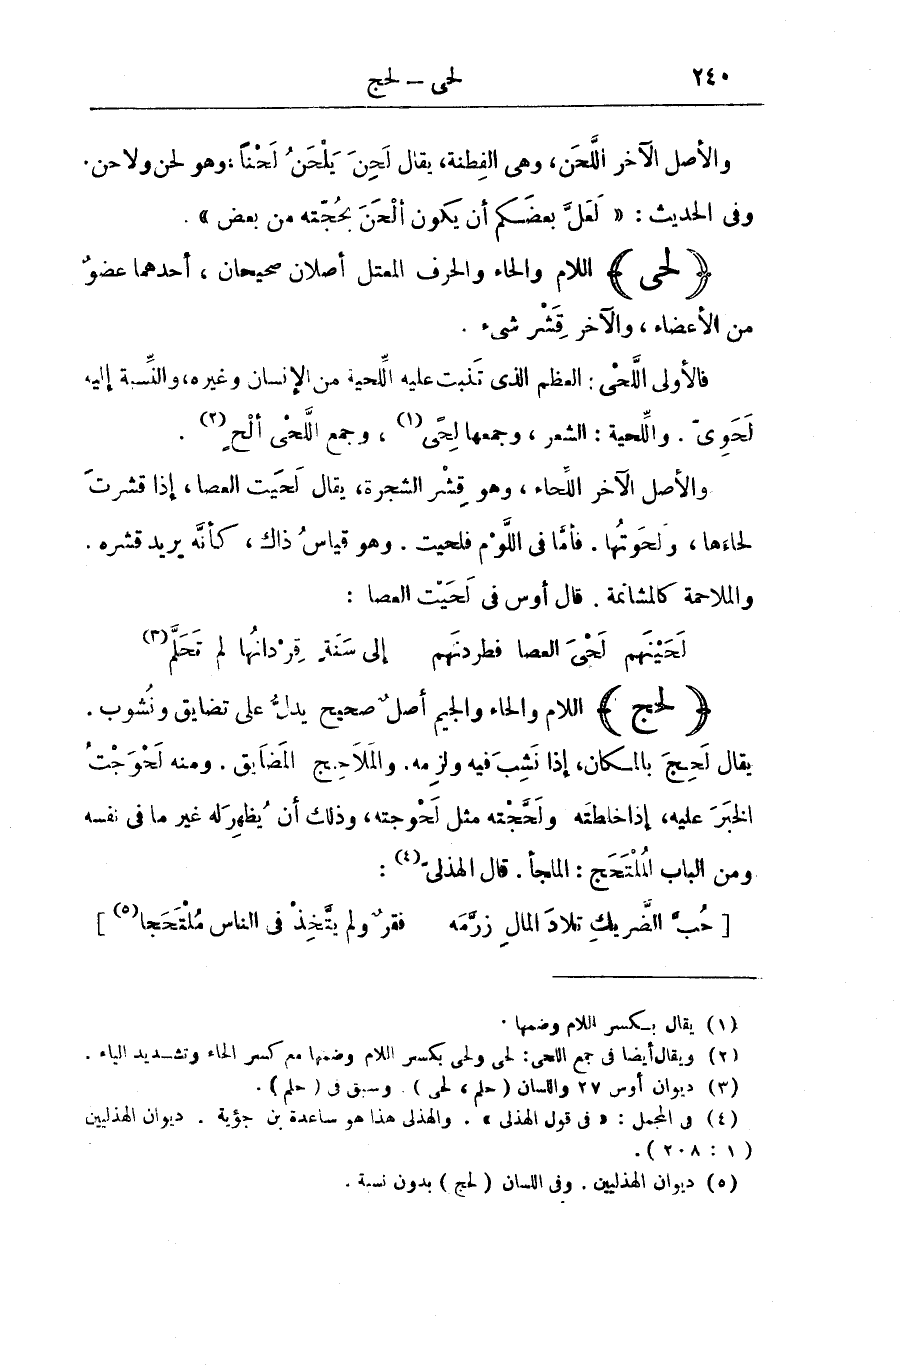 ٢٤٠ لحى – لحج
والأصل الآخر اللَّحَن، وهى الفِطنة، يقال لَحِنَ يَلْحَنُ لَحْنًا، وهو لحن ولاحن.
وفى الحديث: « لَعَلَّ بعضَكم أن يَكون ألْحَنَ بحُجّته من بعض ».
﴿ لحى ﴾ اللام والحاء والحرف المعتل أصلان صحيحان، أحدهما عضوٌ
من الأعضاء، والآخر قِشْر شىء.
فالأولى اللَّحْى: العظم الذى تَنبت عليه اللِّحية من الإنسان وغيره، والنِّسبة إليه
لَحَوِىّ. واللِّحية: الشعر، وجمعها لِحًى(١)، وجمع اللَّحْى ألْحٍ(٢).
والأصل الآخر اللِّحاء، وهو قِشْر الشجرة، يقال لَحَيت العصا، إذا قشرتَ
لحاءَها، ولَحَوتُها. فأمَّا فى اللَّوْم فلحيت. وهو قياسُ ذاك، كأنَّه يريد قشره.
والملاحمة كالمشاتمة. قال أوس فى لَحَيْت العصا:
لَحَيْنَهم لَحْىَ العصا فطردنَهم إلى سَنَةٍ قِرْدانُها لم تَحَلَّم(٣)
﴿ لحج ﴾ اللام والحاء والجيم أصلٌ صحيح يدلُّ على تضايق ونُشوب.
يقال لَحِجَ بالمكان، إذا نَشِبَ فيه ولزِمه. والمَلاَحِج المَضَايق. ومنه لَحْوَجْتُ
الخبَرَ عليه، إذا خلطتَه ولَحَّجْته مثل لَحْوجته، وذلك أن يُظهِرَ له غير ما فى نفسه
ومن الباب المُلْتَحَج: الملجأ. قال الهذلىّ(٤):
[ حُبَّ الضَّريكِ تلادَ المالِ زرَّمَه فقرٌ ولم يتَّخِذْ فى الناس مُلْتَحَجا(٥) ]
(١) يقال بكسر اللام وضمها.
(٢) ويقال أيضا فى جمع اللحى: لحى ولحى بكسر اللام وضمها مع كسر الحاء وتشديد الياء.
(٣) ديوان أوس ٢٧ واللسان ( حلم ، لحى ). وسبق فى ( حلم ).
(٤) فى المجمل: « فى قول الهذلى ». والهذلى هذا هو ساعدة بن جؤية. ديوان الهذليين
( ١ : ٢٠٨ ).
(٥) ديوان الهذليين. وفى اللسان ( لحج ) بدون نسبة.